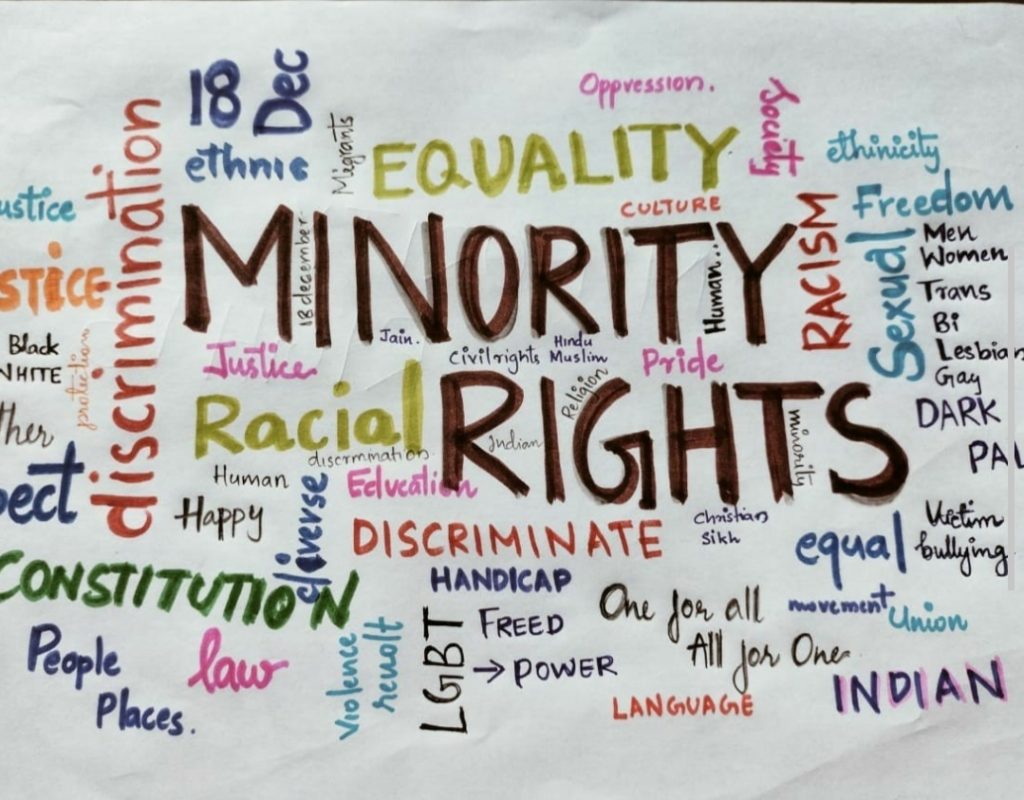 18 Dec
Oppression.
Society
ethnic
Migrants
EQUALITY
ethinicity
ustice
discrimination
CULTURE
Freedom
MINORITY
18 december
Human..
RACISM
Sexual
Men
Women
Trans
Bi
Lesbian
Gay
STiCE
Black
WHITE
protection
Justice
Jain.
Civil rights
Hindu
Muslim
Pride
Racial
discrimination
RIGHTS
Religion
Indian
minority
DARK
PAL
ther
pect
Human
Education
Happy
diverse
DISCRIMINATE
Christian
Sikh
equal
Victim
bullying
CONSTITUTION
HANDICAP
One for all
All for One
movement
Union
People
Places.
law
violence
revolt
LGBT
FREED
→ POWER
LANGUAGE
INDIAN